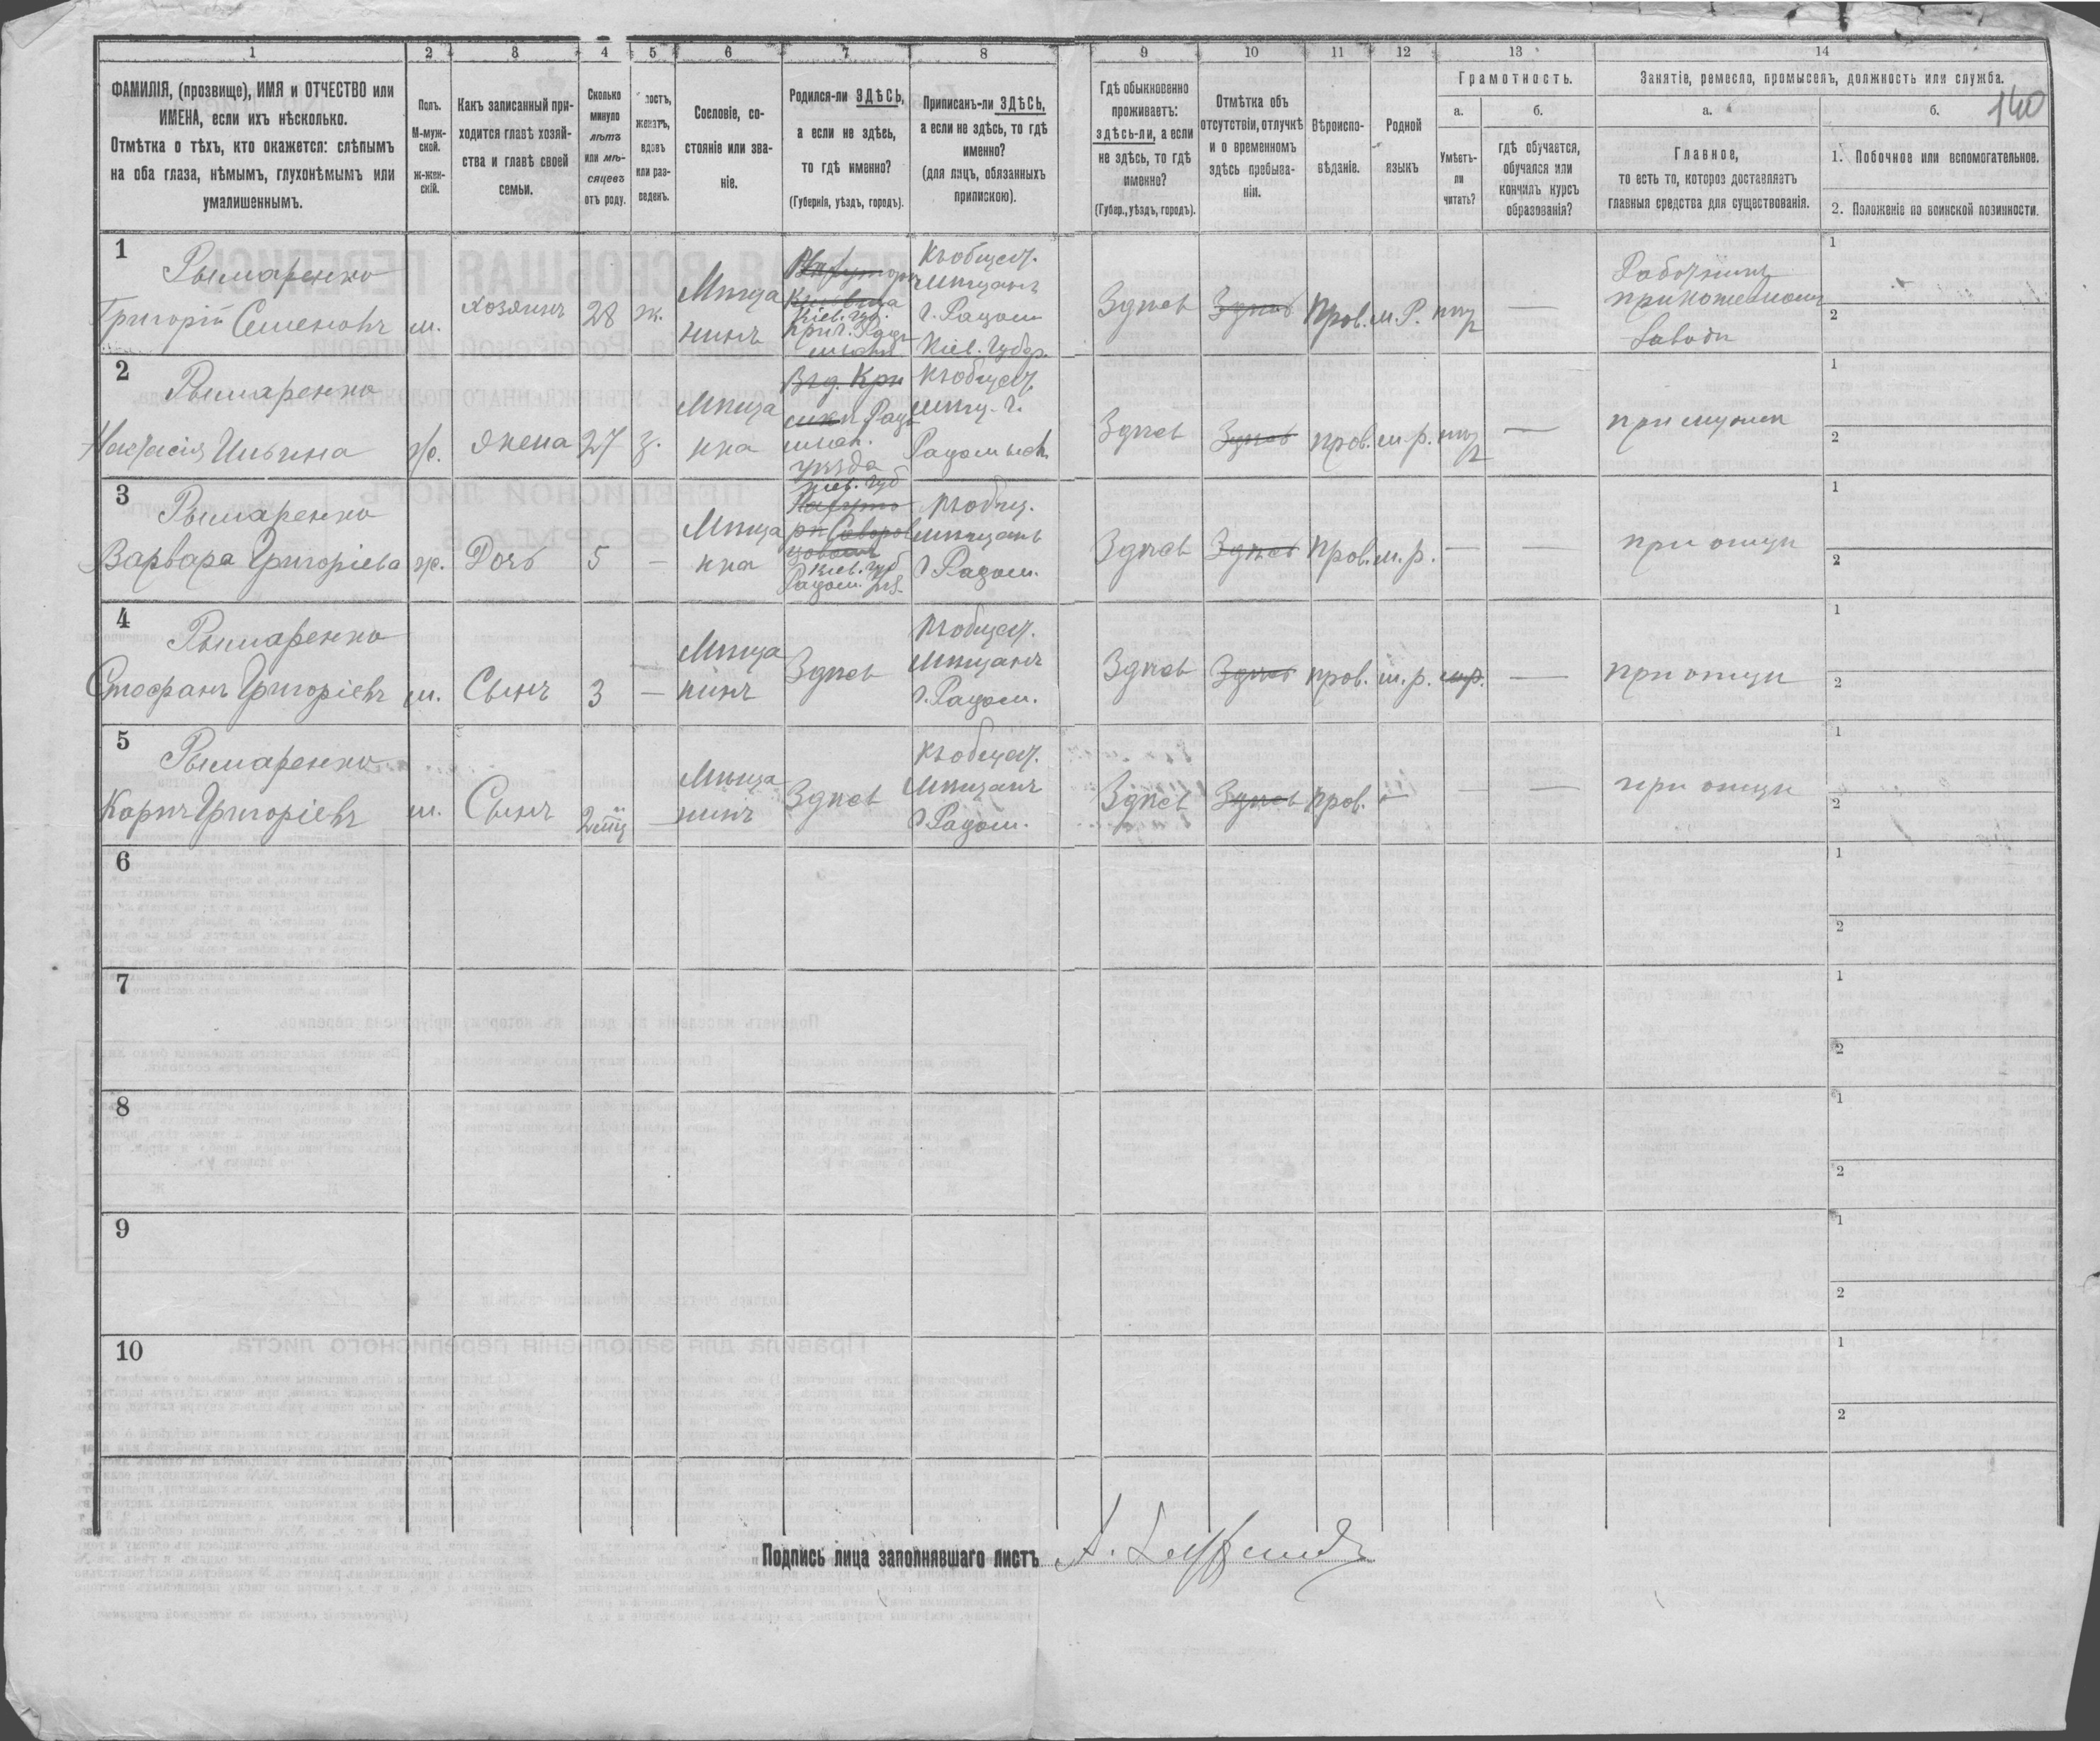 1 2 3 4 5 6 7 8 9 10 11 12 13 14
ФАМИЛІЯ, (прозвище), ИМЯ и ОТЧЕСТВО или
ИМЕНА, если ихъ нѣсколько.
Отмѣтка о тѣхъ, кто окажется: слѣпымъ
на оба глаза, нѣмымъ, глухонѣмымъ или
умалишеннымъ.
Полъ.
М-муж-
ской.
ж-жен-
скій.
Какъ записанный при-
ходится главѣ хозяй-
ства и главѣ своей
семьи.
Сколько
минуло
лѣтъ
или мѣ-
сяцевъ
отъ роду.
лостъ,
женатъ,
вдовъ
или раз-
веденъ.
Сословіе, со-
стояніе или зва-
ніе.
Родился-ли ЗДѢСЬ,
а если не здѣсь,
то гдѣ именно?
(Губернія, уѣздъ, городъ).
Приписанъ-ли ЗДѢСЬ,
а если не здѣсь, то гдѣ
именно?
(для лицъ, обязанныхъ
припискою).
Гдѣ обыкновенно
проживаетъ:
здѣсь-ли, а если
не здѣсь, то гдѣ
именно?
(Губер., уѣздъ, городъ).
Отмѣтка объ
отсутствіи, отлучкѣ
и о временномъ
здѣсь пребыва-
ніи.
Вѣроиспо-
вѣданіе.
Родной
языкъ
Грамотность.
а.
Умѣетъ-
ли
читать?
б.
гдѣ обучается,
обучался или
кончилъ курсъ
образованія?
Занятіе, ремесло, промыселъ, должность или служба.
а.
Главное,
то есть то, которое доставляетъ
главныя средства для существованія.
б.
140
1. Побочное или вспомогательное.
2. Положеніе по воинской повинности.
1
Рымаренко
Григорій Семеновъ
м.
хозяинъ
28
ж.
Мѣща
нинъ
Кіев. губ.
Къ общест.
мѣщанъ
г. Радом
Кіев. Губер.
Здѣсь
Здѣсь
Прав.
м. Р.
нѣт
—
Работникъ
при кожевномъ
заводѣ
1
2
2
Рымаренко
Настасія Ильина
ж.
жена
27
з.
Мѣща
нка
уѣзда
Кіев. губ
Къ общест.
мѣщ. г.
Радомысл.
Здѣсь
Здѣсь
прав.
м. р.
нѣт
—
при мужѣ
1
2
3
Рымаренко
Варвара Григоріева
ж.
Дочь
5
—
Мѣща
нка
Кіев. губ
Радом. уѣз.
Къ общ.
мѣщанъ
г. Радом.
Здѣсь
Здѣсь
Прав.
м. р.
—
—
при отцѣ
1
2
4
Рымаренко
Стефанъ Григоріевъ
м.
Сынъ
3
—
Мѣща
нинъ
Здѣсь
Къ общест.
Мѣщанъ
г. Радом.
Здѣсь
Здѣсь
прав.
м. р.
—
при отцѣ
1
2
5
Рымаренко
Карпъ Григоріевъ
м.
Сынъ
2 мц
Мѣща
нинъ
Здѣсь
Къ общест.
Мѣщанъ
г. Радом.
Здѣсь
Здѣсь
прав.
—
—
—
при отцѣ
1
2
6
1
2
7
1
2
8
1
2
9
1
2
10
1
2
Подпись лица заполнявшаго листъ